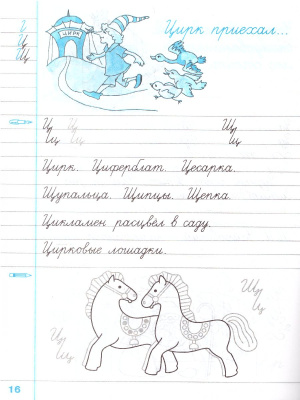 Ц
Цирк приехал...
Ц
ЦИРК
Щ
Щ
Ц Ц Щ
ц ц щ
Цирк. Циферблат. Цесарка.
Щупальца. Щипцы. Щепка.
Цикламен расцвёл в саду.
Цирковые лошадки.
Щ
щ
Щ
щ
16